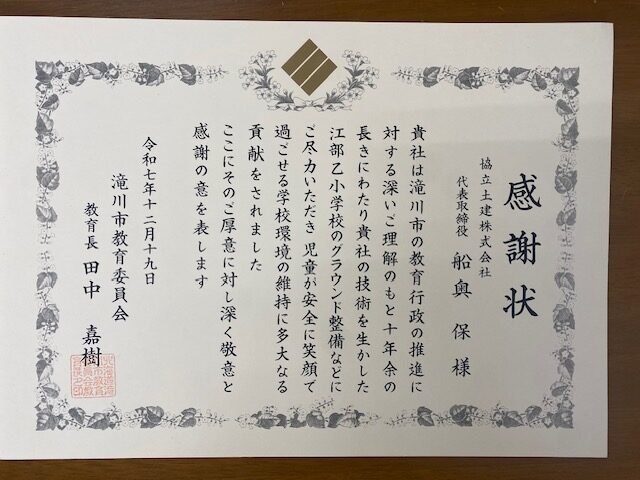 感謝状
協立土建株式会社
代表取締役 船奥 保 様
貴社は滝川市の教育行政の推進に
対する深いご理解のもと十年余の
長きにわたり貴社の技術を生かした
江部乙小学校のグラウンド整備などに
ご尽力いただき 児童が安全に笑顔で
過ごせる学校環境の維持に多大なる
貢献をされました
ここにそのご厚意に対し深く敬意と
感謝の意を表します
令和七年十二月十九日
滝川市教育委員会
教育長 田中 嘉樹